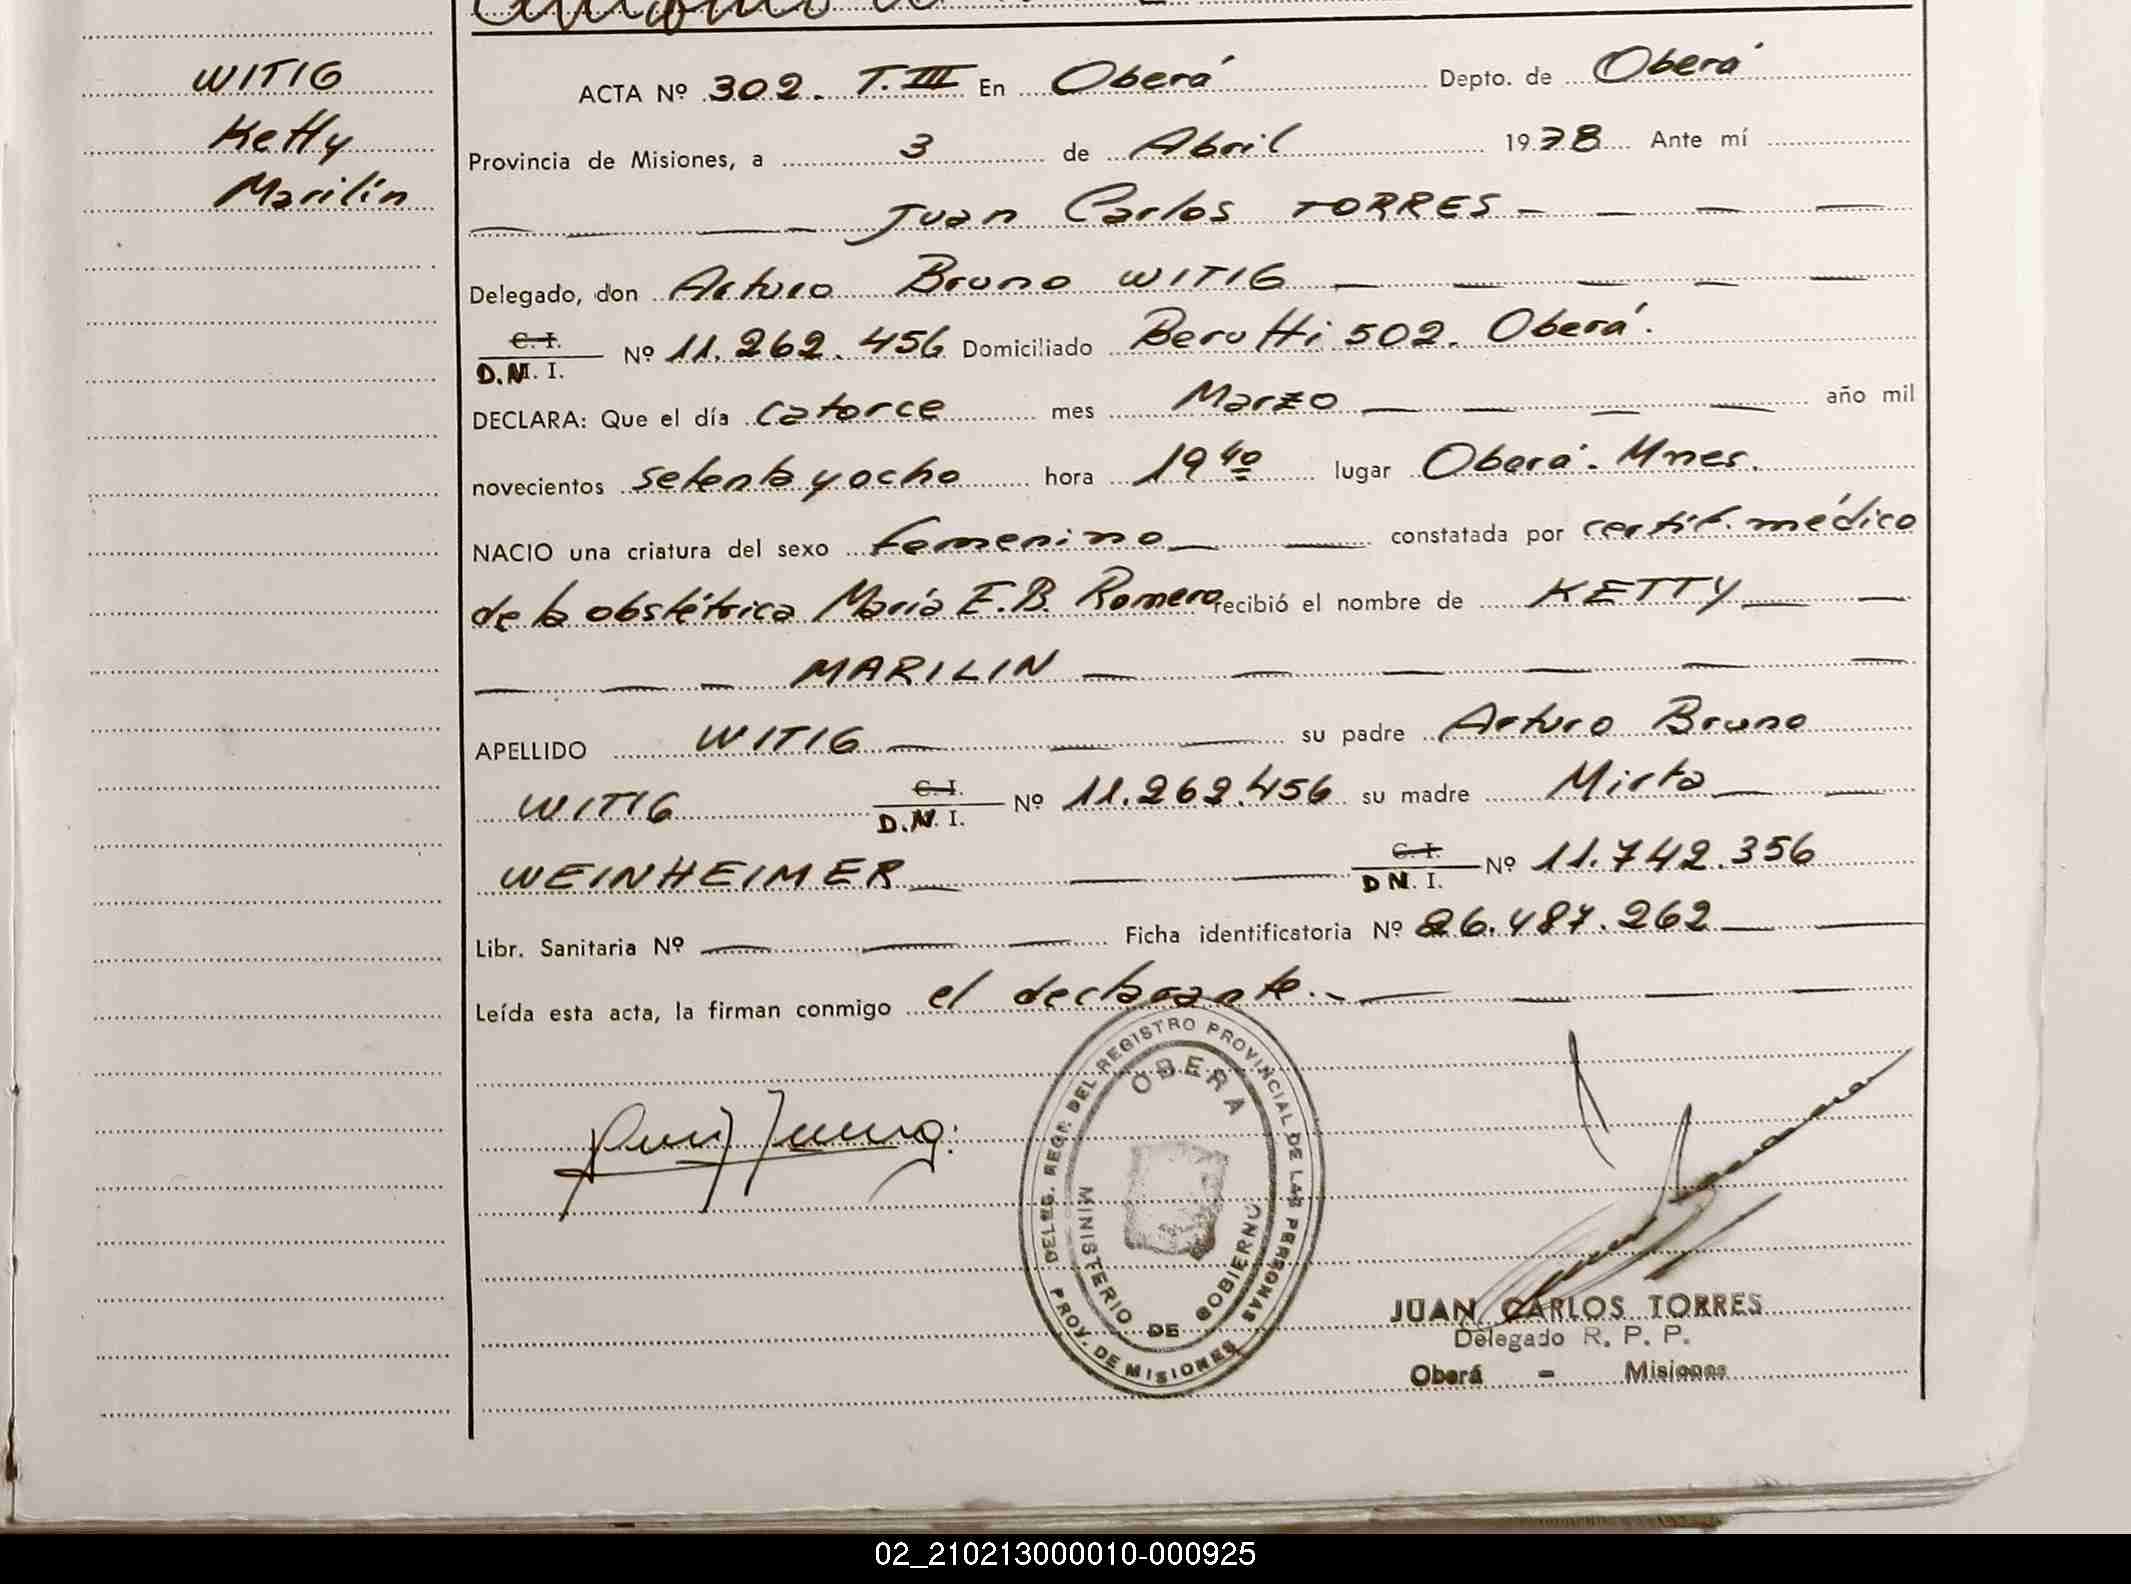 WITIG
Ketty
Marilín
ACTA Nº 302. T.III En Oberá Depto. de Oberá
Provincia de Misiones, a 3 de Abril 1978 Ante mí
Juan Carlos TORRES
Delegado, don Arturo Bruno WITIG
C. I.
D.N. I. Nº 11.262.456 Domiciliado Berutti 502. Oberá.
DECLARA: Que el día catorce mes Marzo año mil
novecientos setenta y ocho hora 19 40 lugar Oberá. Mnes.
NACIO una criatura del sexo femenino constatada por certif. médico
de la obstétrica María E.B. Romero recibió el nombre de KETTY
MARILIN
APELLIDO WITIG su padre Arturo Bruno
WITIG C. I. D.N. I. Nº 11.262.456 su madre Mirta
WEINHEIMER C. I. D N. I. Nº 11.742.356
Libr. Sanitaria Nº Ficha identificatoria Nº 26.487.262
Leída esta acta, la firman conmigo el declarante.
DELEG. REGF. DEL REGISTRO PROVINCIAL DE LAS PERSONAS
OBERA
MINISTERIO DE GOBIERNO
PROV. DE MISIONES
JUAN CARLOS TORRES
Delegado R. P. P.
Oberá - Misiones
02_210213000010-000925